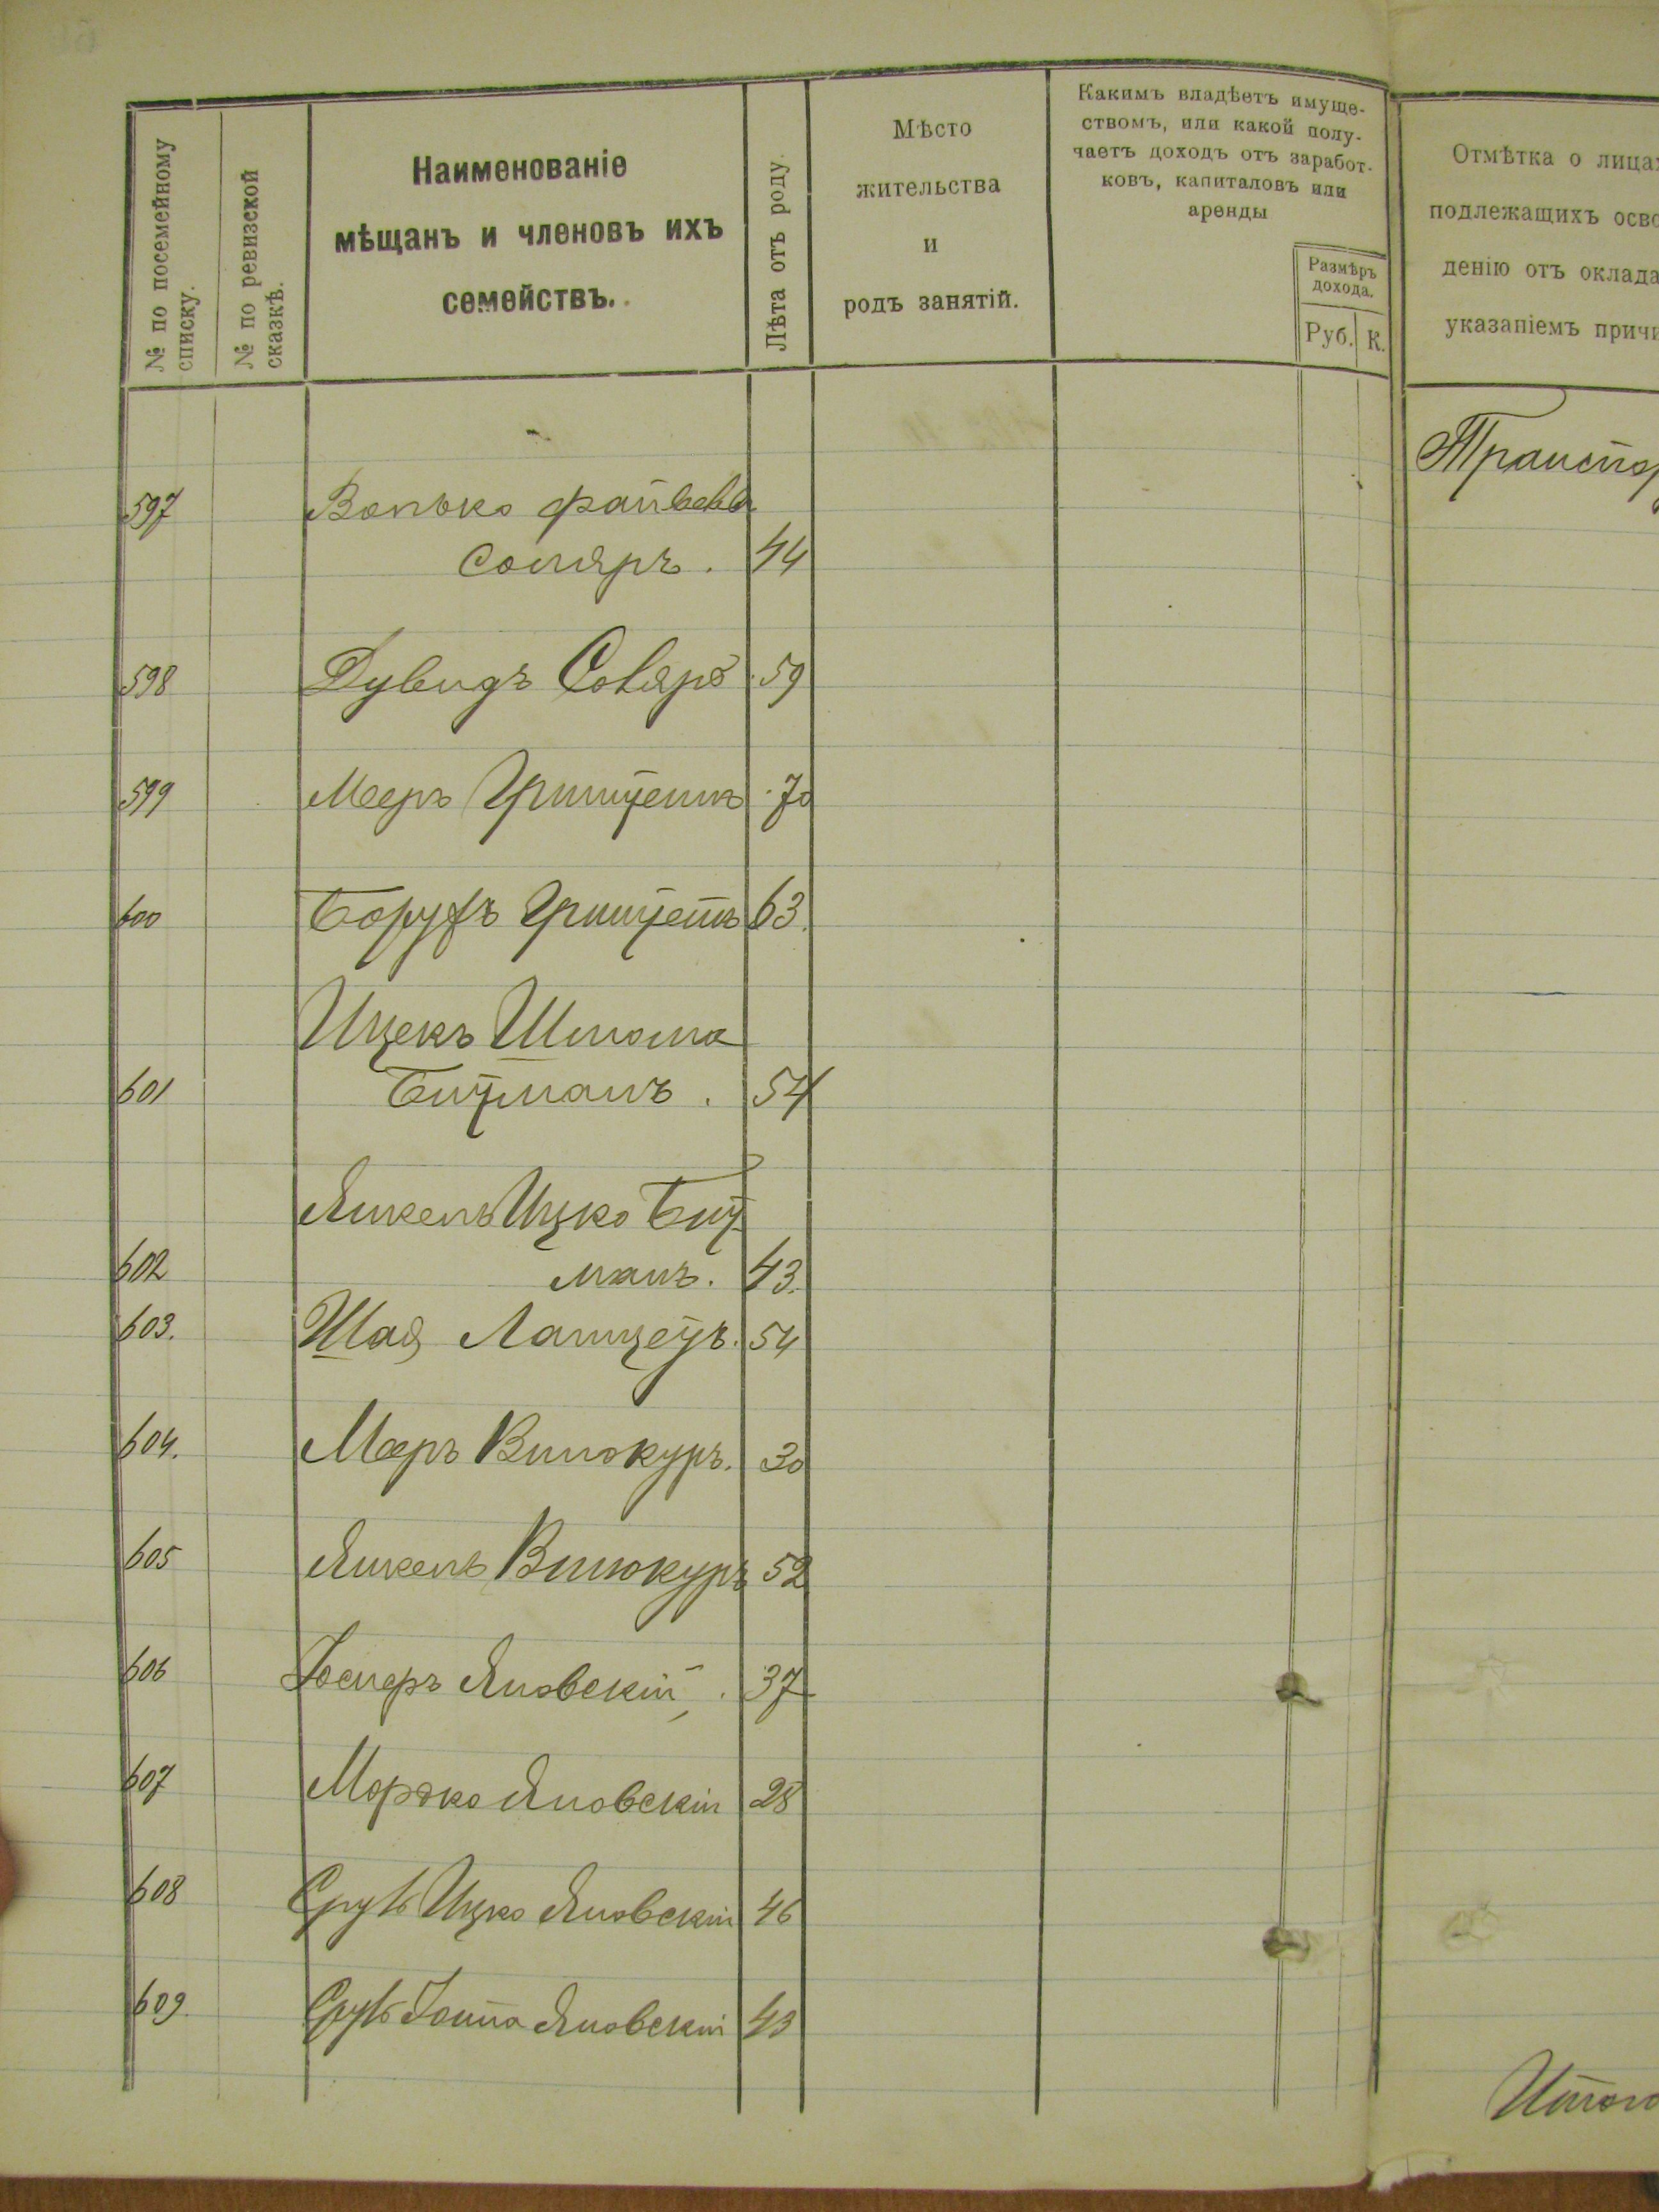 № по посемейному
списку.
№ по ревизской
сказкѣ.
Наименованіе
мѣщанъ и членовъ ихъ
семействъ.
Лѣта отъ роду.
Мѣсто
жительства
и
родъ занятій.
Какимъ владѣетъ имуще-
ствомъ, или какой полу-
чаетъ доходъ отъ заработ-
ковъ, капиталовъ или
аренды
Размѣръ
дохода.
Руб. К.
Отмѣтка о лица
подлежащихъ осво
денію отъ оклада
указаніемъ причи
Транспор
597 Волько
Столяръ. 44
598 Дувидъ 59
599 Мееръ 70
600 Борухъ 63.
Ицекъ Шлома
601 Битманъ. 54
Янкель Ицко Бит
602 манъ. 43.
603. Шая 54
604. Мееръ Винокуръ. 30
605 Янкель Винокуръ 52
606 Яновскій. 37
607 Мордко Яновскій 28
608 Сруль Ицко Яновскій 46
609. Сруль Яновскій 43
Итого